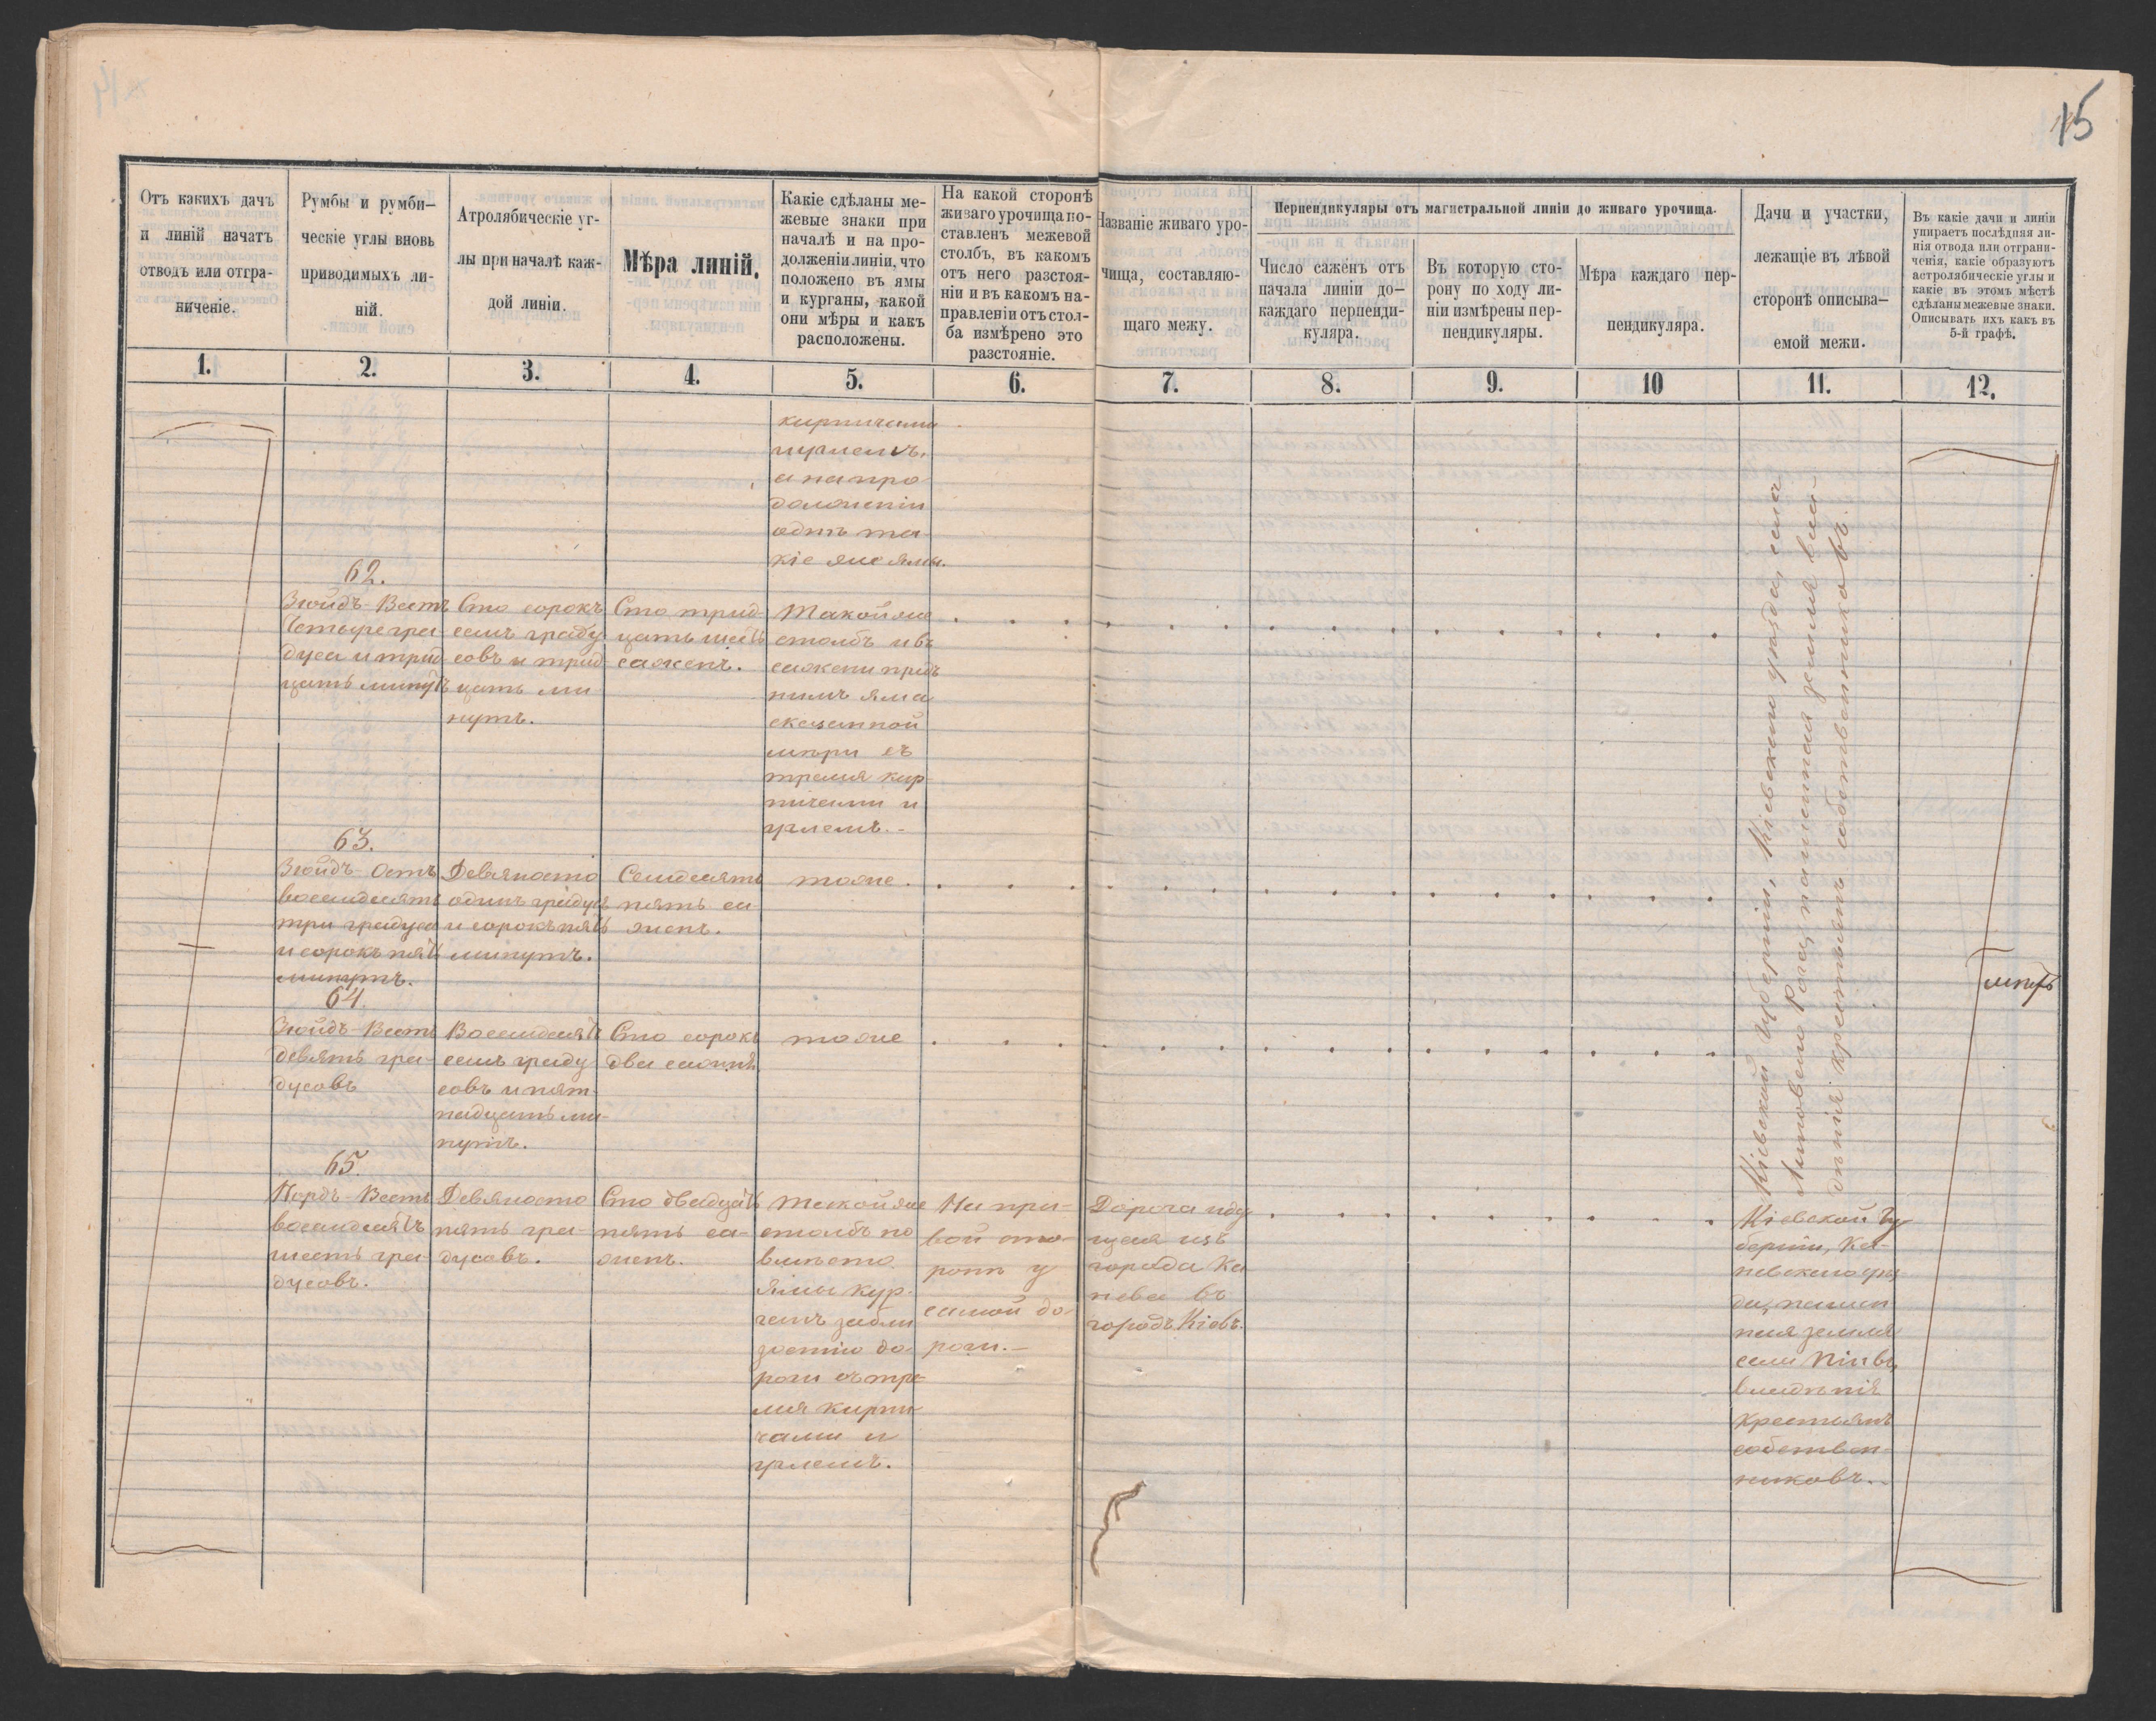 15
Отъ какихъ дачъ
и линій начатъ
отводъ или отгра-
ниченіе.
Румбы и румби-
ческіе углы вновь
приводимыхъ ли-
ній.
Атролябическіе уг-
лы при началѣ каж-
дой линіи.
Мѣра линій.
Какіе сдѣланы ме-
жевые знаки при
началѣ и на про-
долженіи линіи, что
положено въ ямы
и курганы, какой
они мѣры и какъ
расположены.
На какой сторонѣ
живаго урочища по-
ставленъ межевой
столбъ, въ какомъ
отъ него разстоя-
ніи и въ какомъ на-
правленіи отъ стол-
ба измѣрено это
разстояніе.
Названіе живаго уро-
чища, составляю-
щаго межу.
Перпендикуляры отъ магистральной линіи до живаго урочища.
Число сажёнъ отъ
начала линіи до-
каждаго перпенди-
куляра.
Въ которую сто-
рону по ходу ли-
ніи измѣрены пер-
пендикуляры.
Мѣра каждаго пер-
пендикуляра.
Дачи и участки,
лежащіе въ лѣвой
сторонѣ описыва-
емой межи.
Въ какіе дачи и линіи
упираетъ послѣдняя ли-
нія отвода или отграни-
ченія, какіе образуютъ
астролябическіе углы и
какіе въ этомъ мѣстѣ
сдѣланы межевые знаки.
Описывать ихъ какъ въ
5-й графѣ.
1. 2. 3. 4. 5. 6. 7. 8. 9. 10 11. 12.
кирпичами
и углемъ,
а на про
долженіи
однѣ та-
кіе же ямы.
62.
Зюйдъ-Вестъ
Четыре гра-
дуса и трид
цать минутъ
Сто сорокъ
семь граду
совъ и трид
цать ми
нутъ.
Сто трид-
цать шесть
саженъ.
Такой же
столбъ и въ
сажени предъ
нимъ яма
сказанной
мѣри съ
тремя кир
пичами и
углемъ.-
63.
Зюйдъ-Остъ
восемдесятъ
три градуса
и сорокъ пять
минутъ.
Девяносто
одинъ градусъ
и сорокъ пять
минутъ.
Семдесятъ
пять са
женъ.
тоже
64.
Зюйдъ-Вестъ
девять гра-
дусовъ
Восемдесятъ
семь граду
совъ и пят-
надцать ми-
нутъ.
Сто сорокъ
два сажня
тоже
65.
Нордъ-Вестъ
восемдесятъ
шесть гра-
дусовъ.
Девяносто
пять гра-
дусовъ.
Сто двадцать
пять са-
женъ.
Такой же
столбъ но
вмѣсто
ямы кур-
ганъ за бли
зостію до-
роги съ тре-
мя кирпи-
чами и
углемъ.
На пра-
вой сто-
ронѣ у
самой до-
роги.-
Дорога иду
щая изъ
города Ка
нева въ
городъ Кіевъ.
Кіевской губерніи, Кіевскаго уѣзда, села
Рога, пахатная земля вла-
дѣнія крестьянъ собственниковъ.
Кіевской Гу
берніи, Ка-
невскаго уѣз
да, пахат
ная земля
села
владѣнія
крестьянъ
собствен-
никовъ.-